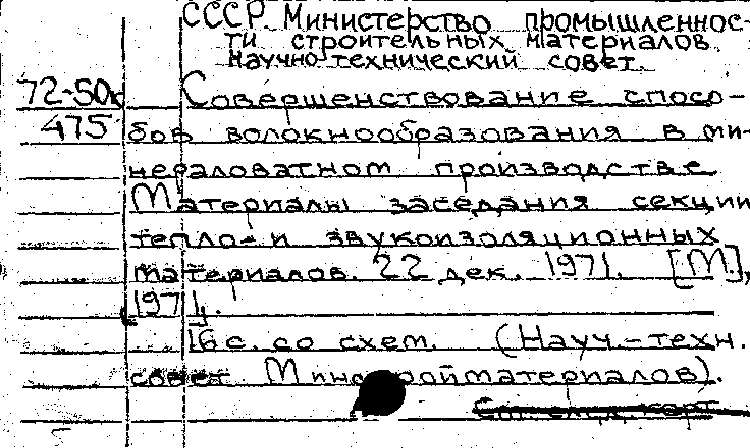 СССР. Министерство промышленнос-
ти строительных материалов.
Научно-технический совет.
72-50к Совершенствование спосо-
475 бов волокнообразования в ми-
нераловатном производстве
Материалы заседания секции
тепло- и звукоизоляционных
материалов. 22 дек. 1971. [М.],
[1971].
16 с. со схем. (Науч.-техн.
совет Минстройматериалов).